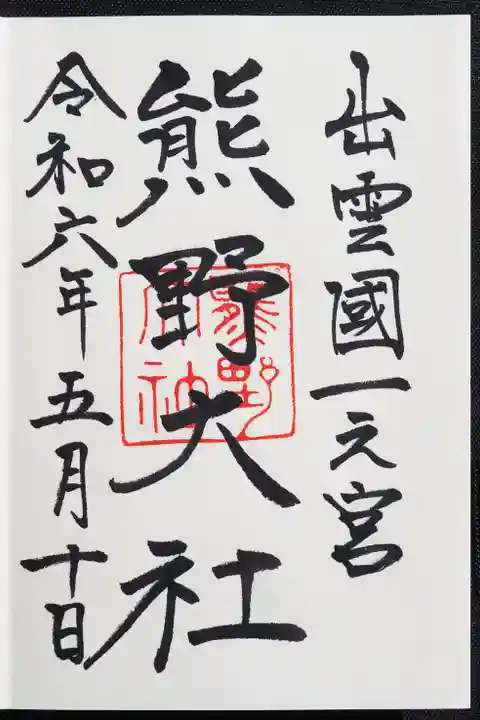 出雲國一之宮
熊野大社
熊野大社
令和六年五月十日